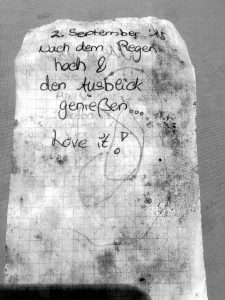 2. September '15
Nach dem Regen
hoch &
den Ausblick
genießen...
Love it!